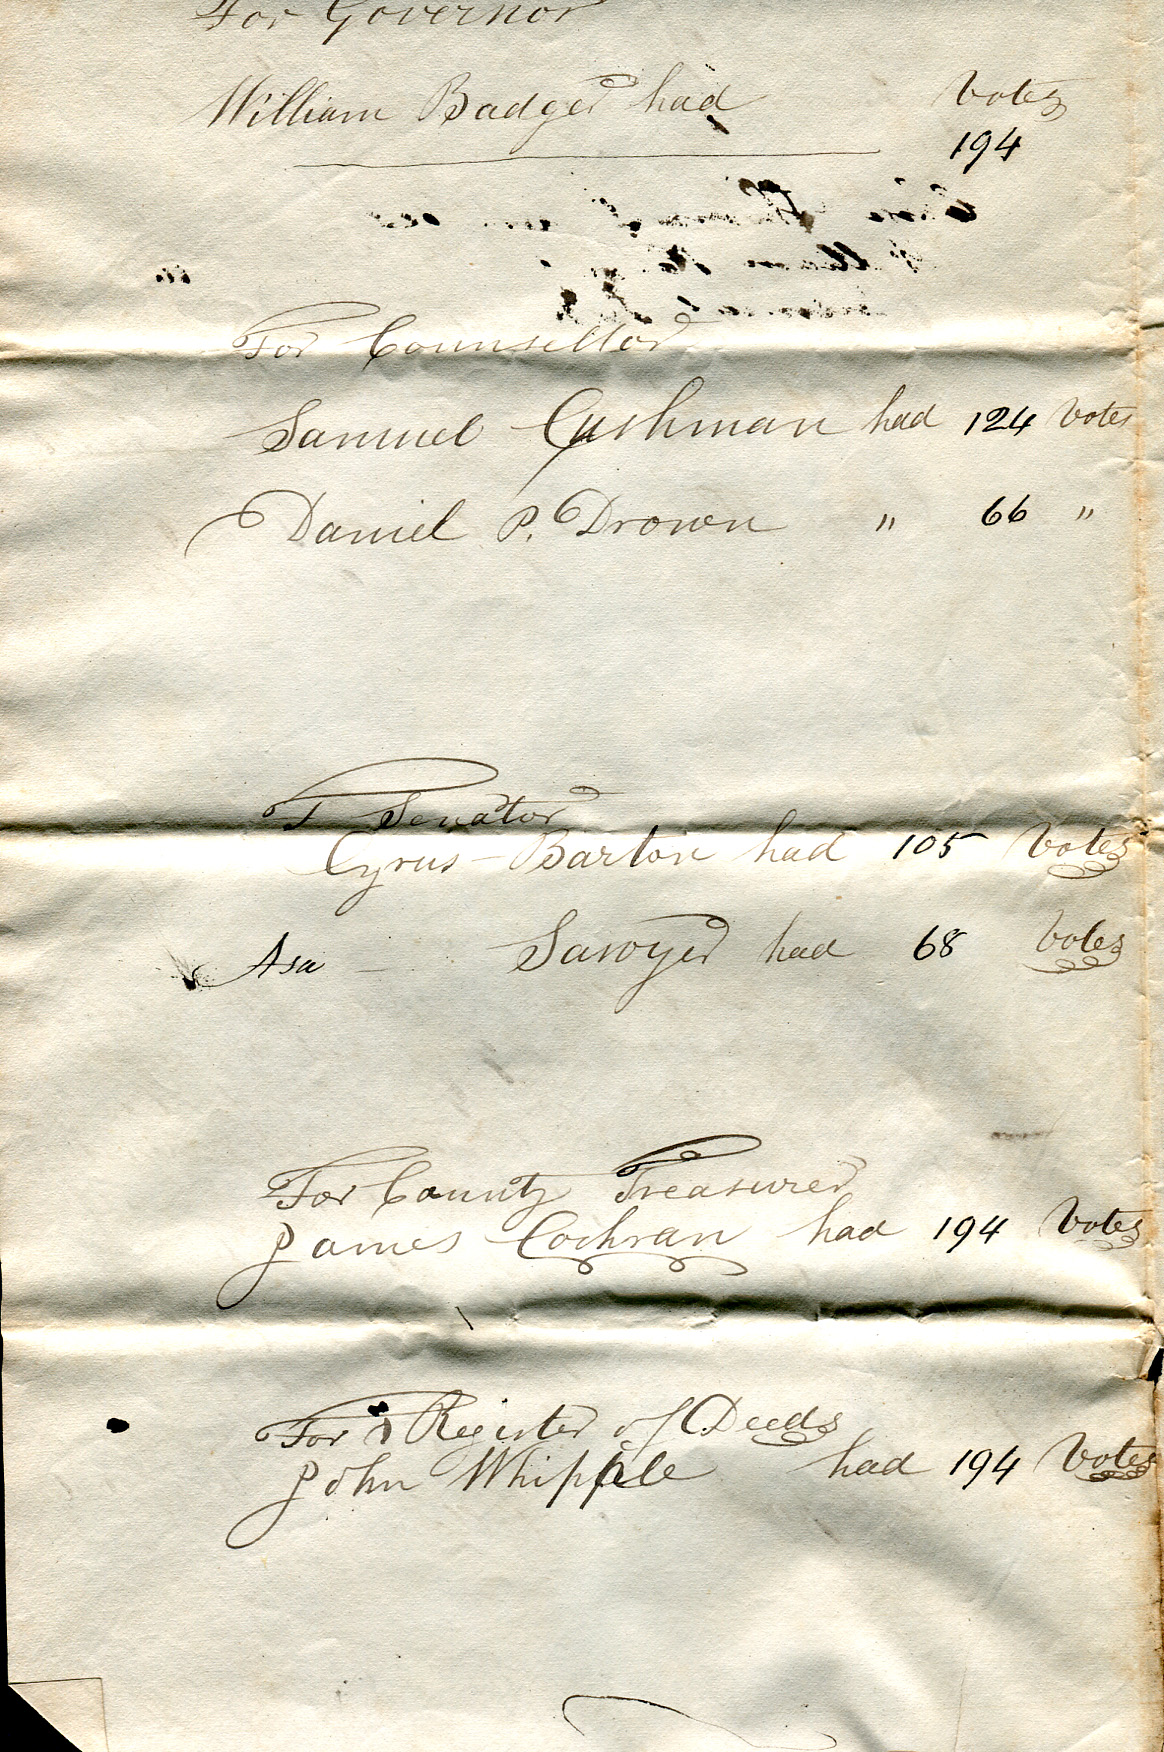 For Governor
William Badger had votes
194
For Counsellor
Samuel Cushman had 124 votes
Daniel P. Drown " 66 "
F Senator
Cyrus - Barton had 105 votes
Asa - Sawyer had 68 votes
For County Treasurer
James Cochran had 194 votes
For Register of Deeds
John Whipple had 194 votes